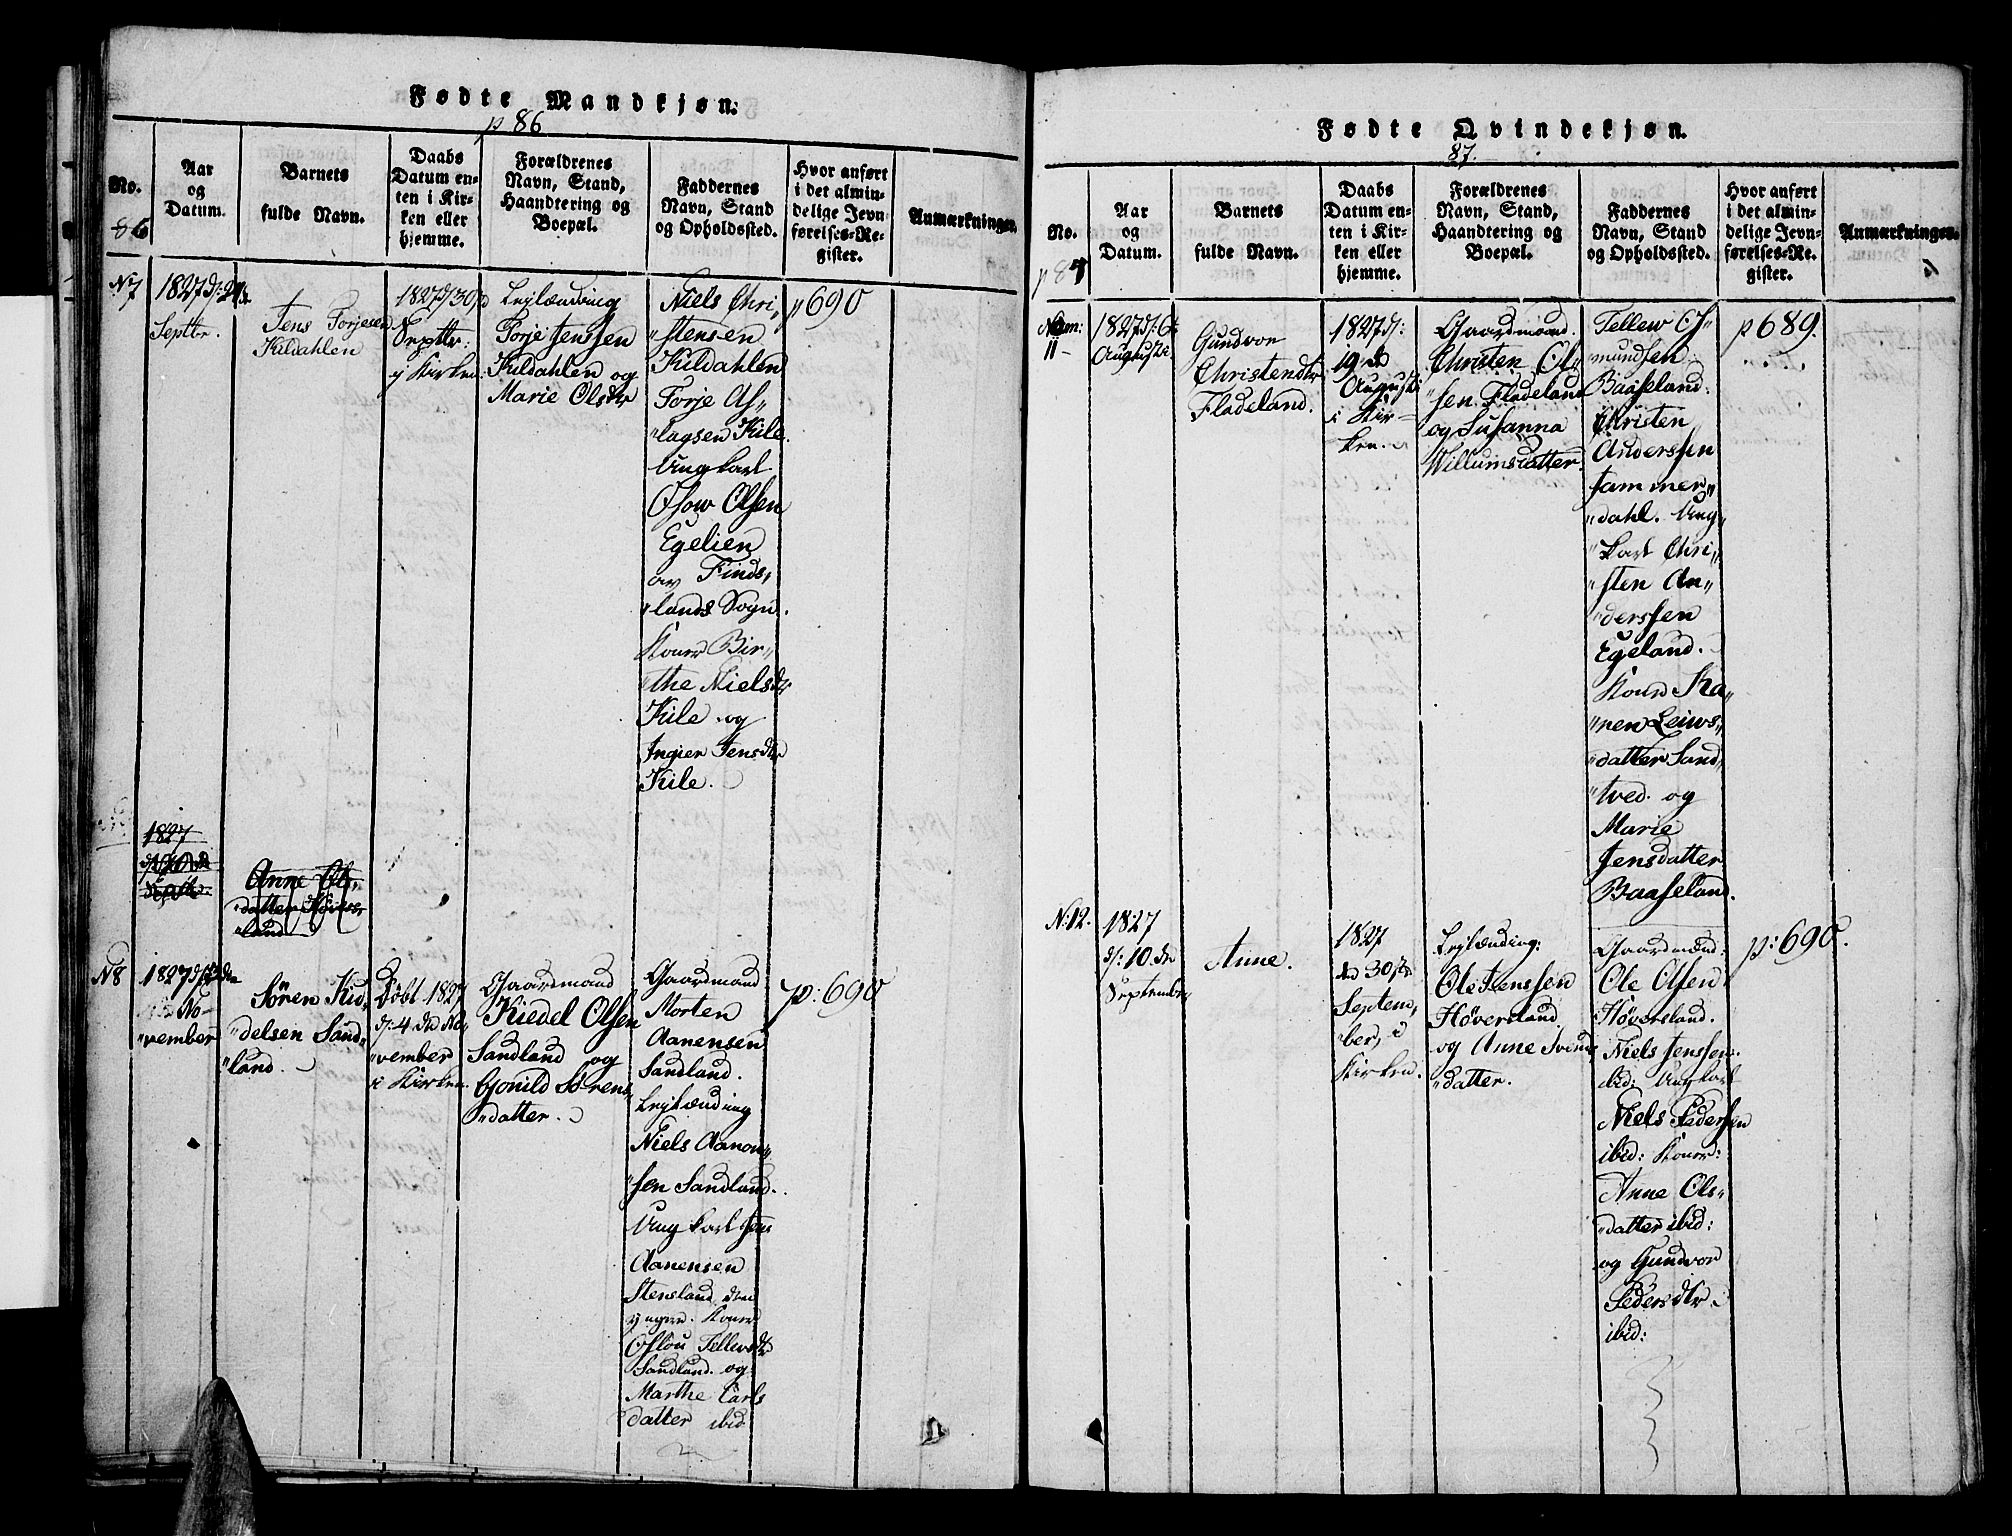 Fødte Mandkjøn.
p 86
No.
86
Aar
og
Datum.
Barnets
fulde Navn.
Daabs
Datum en-
ten i Kir-
ken eller
hjemme.
Forældrenes
Navn, Stand,
Haandtering og
Boepæl.
Faddernes
Navn, Stand
og Opholdssted.
Hvor anført
i det almin-
delige Jevn-
førelses-Re-
gister.
Anmærkninger.
N7
Septbr.
Jens Torjesen
Kildahlen
1827 d: 30te
Septbr:
i Kirken:
Leylænding
Torje Jenssen
Kildahlen og
Marie Olsdtr
Niels Chri„
„stensen
Kildahlen
Torje As„
„lagsen Kile.
Ungkarl
Osow Olsen
Egelien
av Finds„
„lands Sogn.
Koner Bir„
„the Nielsdtr
Kile og
Ingier Jensdtr
Kile.
p 690
1827
Anne Ols„
„datter Høvers„
„land
N8
No-
„vember
Sören Kid„
„delsen Sand„
„land.
Döbt 1827
d: 4 de No„
„vember
i Kirken.
Gaardmand
Kiedel Olsen
Sandland og
Gonild Sörens„
„datter.
Gaardmand
Morten
Aanensen
Sandland.
Leylænding
Niels Aanon„
„sen Sandland.
Ungkarl Jens
Aanensen
Stensland den
yngre. Koner
Oslou Tellevsdtr
Sandland og
Marthe Carls
datter ibid
p: 690
Fødte Qvindekjøn.
87.
No.
p 87
Aar
og
Datum.
Barnets
fulde Navn.
Daabs
Datum en-
ten i Kir-
ken eller
hjemme.
Forældrenes
Navn, Stand,
Haandtering og
Boepæl.
Faddernes
Navn, Stand
og Opholdssted.
Hvor anført
i det almin-
delige Jevn-
førelses-Re-
gister.
Anmærkninger.
Num:
11 –
1827 d: 6te
Augusti
Gundvor
Christendtr
Fladeland.
1827 d:
19 de
Augusti
i Kir-
ken.
Gaardmand.
Christen Ol„
„sen Fladeland
og Susanna
Willumsdatter.
Tellew Os„
mundsen
Baaseland.
Christen
Anderssen
Jammer„
„dahl. Ung„
„karl Chri„
„sten An„
„derssen
Egeland.
Koner Ka„
„ren Leiws„
datter Sand„
tved og
Marie
Jensdatter
Baaseland.
p 689.
N: 12.
1827
d: 10. de
September
Anne.
1827
den 30te
Septem„
ber, i
Kirken.
Leylænding:
Ole Jenssen
Høversland
og Anne Svends
„datter.
Gaardmænd:
Ole Olsen
Høversland.
Niels Jenssen.
ibid: Ungkarl
Niels Pederssen
ibid: Koner:
Anne Ols„
„datter ibid:
og Gundvor
Pedersdtr.
ibid:
p: 690.